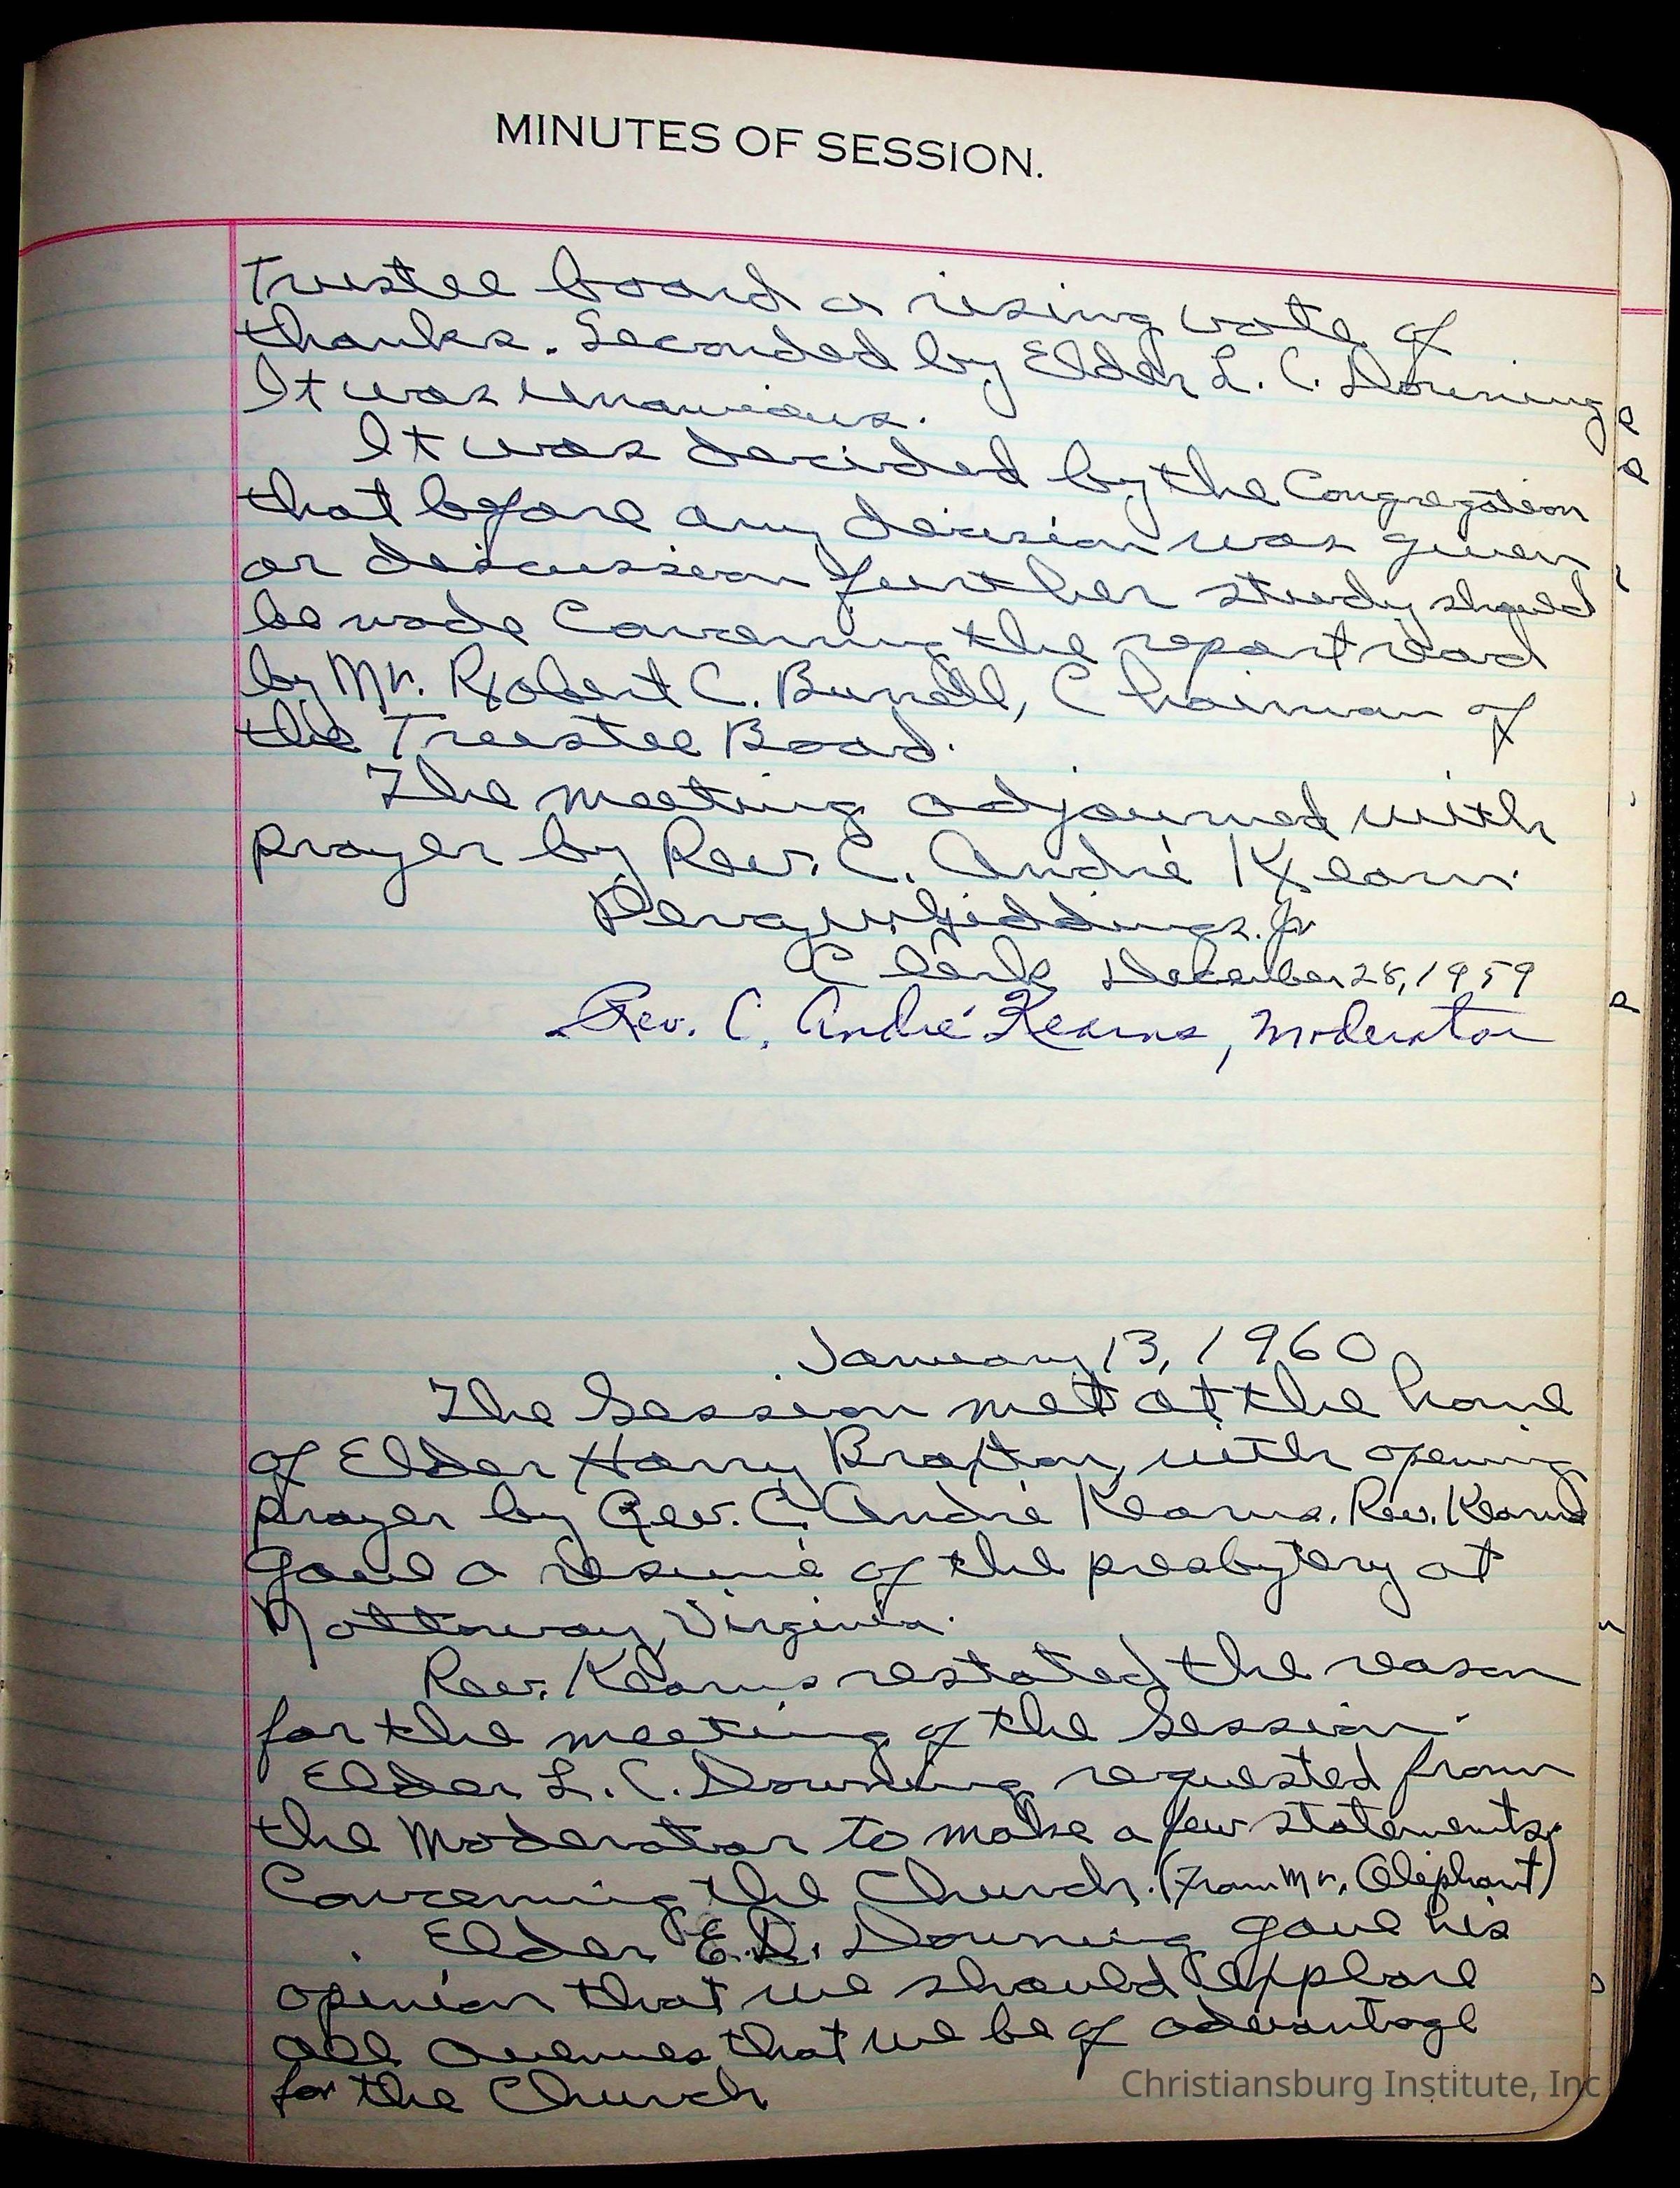 MINUTES OF SESSION.
Trustee board a rising vote of
thanks. Seconded by Elder L. C. Downing
It was unanious.
It was decided by the Congregation
that before any decision was given
or discussion further study should
be made Concerning the report read
by Mr. Robert C. Burrell, Chairman of
the Trustee Board.
The meeting adjourned with
prayer by Rev. C. André Kearn.
Percy W. Giddings. Jr
Clerk December 28, 1959
Rev. C. André Kearns, Moderator
January 13, 1960
The Session met at the home
of Elder Harry Braxton, with opening
prayer by Rev. C. André Kearns. Rev. Kearns
gave a resumé of the presbytery at
Nottoway, Virginia.
Rev. Kearns restated the reason
for the meeting of the Session.
Elder L. C. Downing requested from
the Moderator to make a few statements
Concerning the Church. (From Mr. Oliphant)
Elder E.D. Downing gave his
opinion that we should explore
all avenues that we be of advantage
for the Church
Christiansburg Institute, Inc